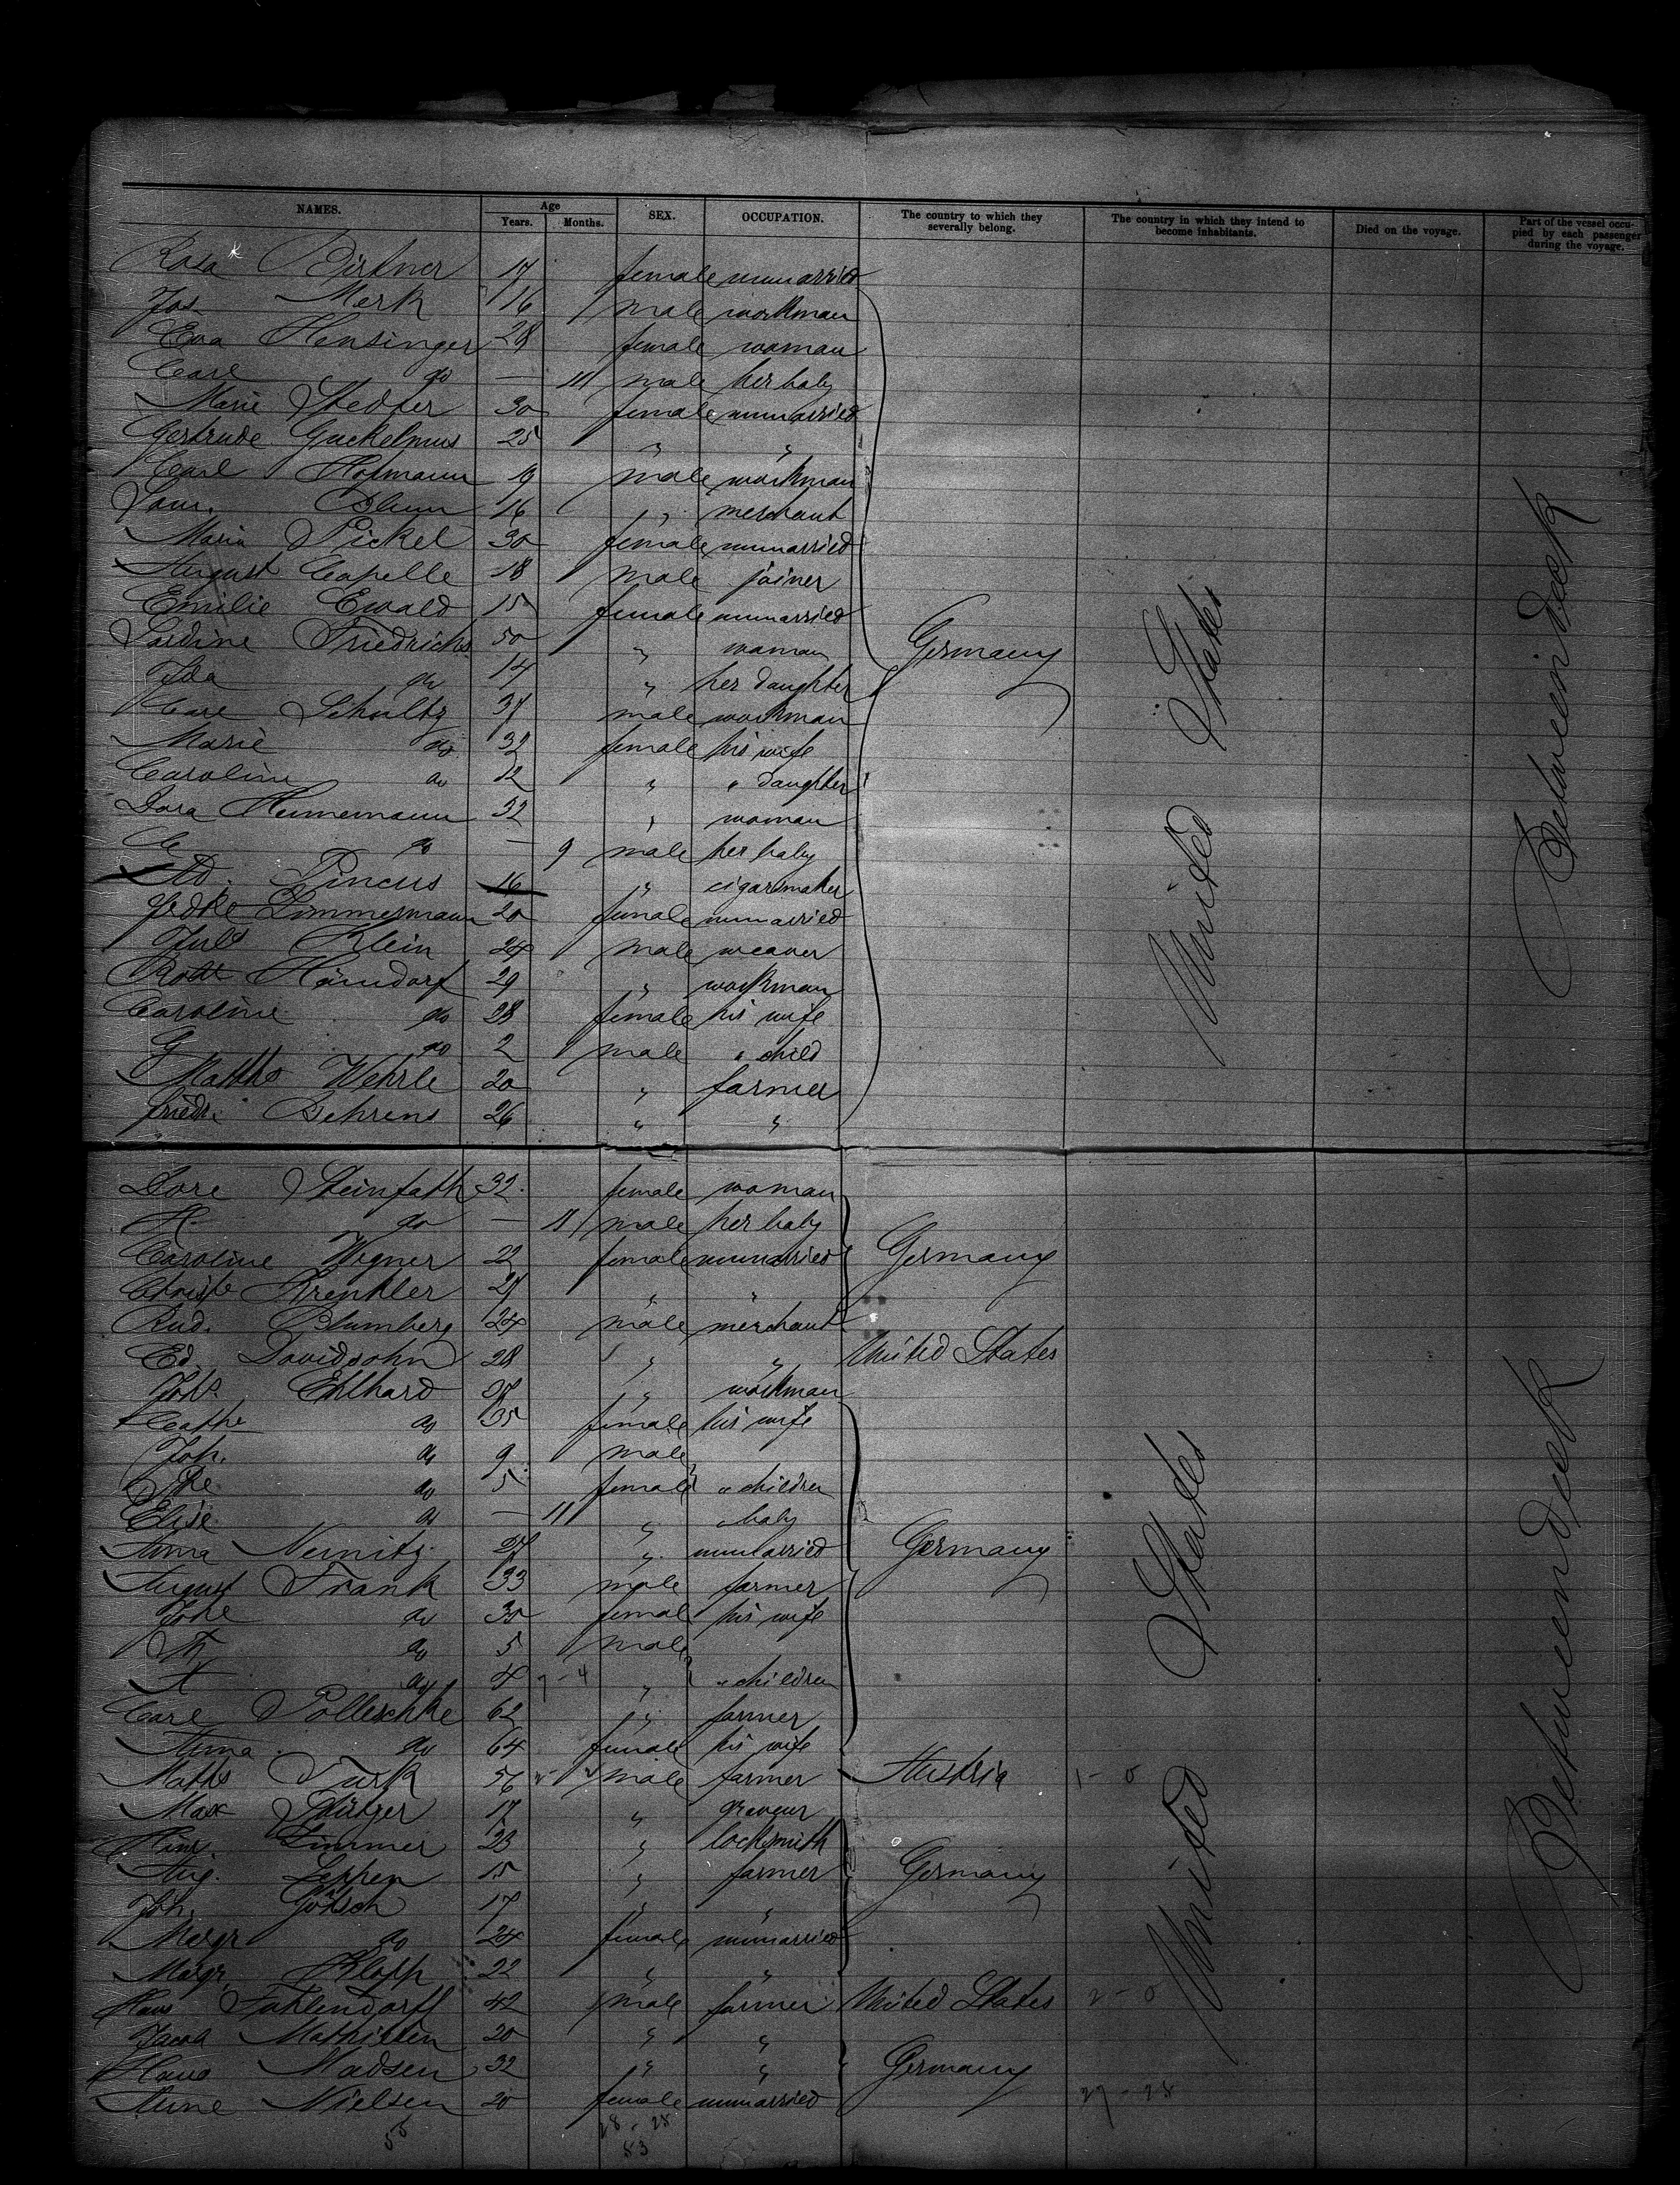 NAMES. Age Years. Months. SEX. OCCUPATION. The country to which they severally belong. The country in which they intend to become inhabitants. Died on the voyage. Part of the vessel occupied by each passenger during the voyage.
Rosa Birkner 17 female unmarried
Jos. Merk 16 male workman
Eva Hensinger 28 female woman
Carl do — 11 male her baby
Marie Stedfer 30 female unmarried
Gertrude Guckelmus 25 " "
Carl Hofmann 19 male workman
Blum 16 " merchant
Maria Pickel 30 female unmarried
August Capelle 18 male joiner
Emilie Ewald 15 female unmarried
Friedrichs 50 " woman Germany
Ida do 14 " her daughter
Carl Schultz 37 male workman
Marie do 32 female his wife
Caroline do 12 " " daughter
Dora Hennemann 32 " woman
C do — 9 male her baby
Ad. Pincus 16 " cigarsmaker
Zimmermann 20 female unmarried
Juls Klein 24 male weaver
Robt Hamdorf 29 " workman
Caroline do 28 female his wife
G do 2 male " child
Matths Wehrle 20 " farmer
Friedr. Behrens 26 " "
United States
Between deck
Dore Steinfath 32 female woman
H do — 11 male her baby
Caroline Wegner 22 female unmarried Germany
Christe Krenkler 27 " "
Rud. Blumberg 24 male merchant
Ed. Davidsohn 28 " " United States
Johs. Ehlhard 37 " workman
Cathe do 35 female his wife
Joh. do 9 male
do 5 female " children
Elise do — 11 " " baby
Anna Nemitz 27 " unmarried Germany
August Frank 33 male farmer
Johe do 35 female his wife
do 5 male
A do 4 7-4 " " children
Carl Polleschke 62 " farmer
Anna do 64 female his wife
Maths Turk 56 male farmer Austria 1-0
Max 17 " graveur
Heinr. Zimmer 23 " locksmith
Aug. 15 " farmer Germany
Joh. Götsch 17 " "
Margr do 24 female unmarried
Margr. Klopp 22 " "
Hans Fahlendorff 42 male farmer United States 2-0
Jacob Mathissen 20 " "
Hans Madsen 32 " " Germany
Anne Nielsen 20 female unmarried 27-28
55 28-28
53
United States
Between deck